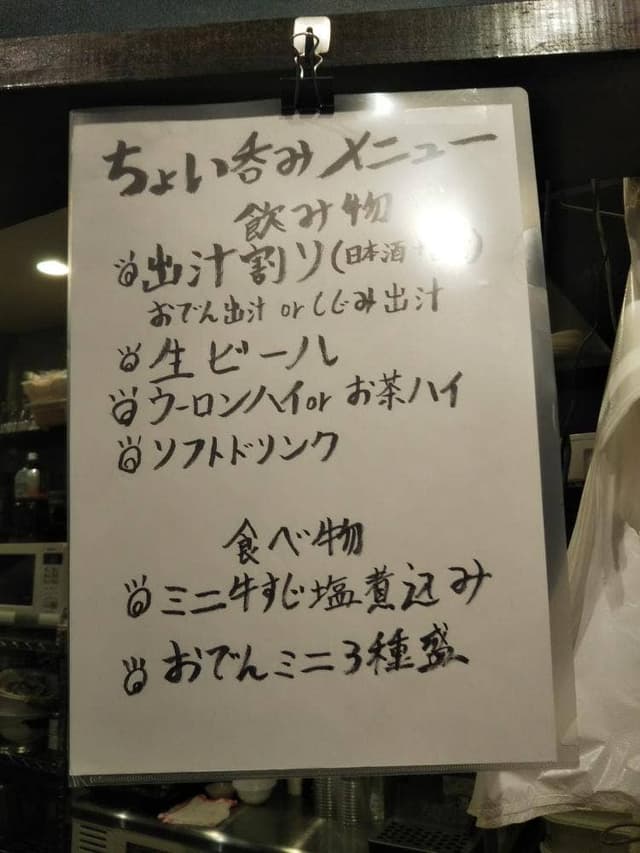 ちょい呑みメニュー
飲み物
出汁割り(日本酒
おでん出汁 or しじみ出汁
生ビール
ウーロンハイor お茶ハイ
ソフトドリンク
食べ物
ミニ牛すじ塩煮込み
おでんミニ3種盛